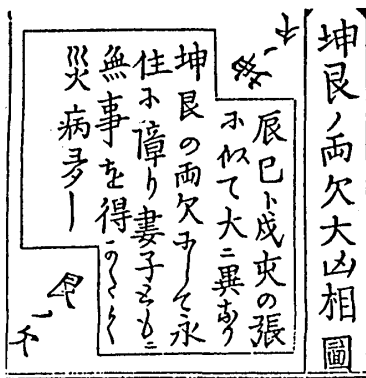 坤艮ノ両欠大凶相圖
坤ノ欠
辰巳ト戌亥の張
に似て大ニ異なり
坤艮の両欠にして永
住に障り妻子ともニ
無事を得かたく
災病多し
艮ノ欠